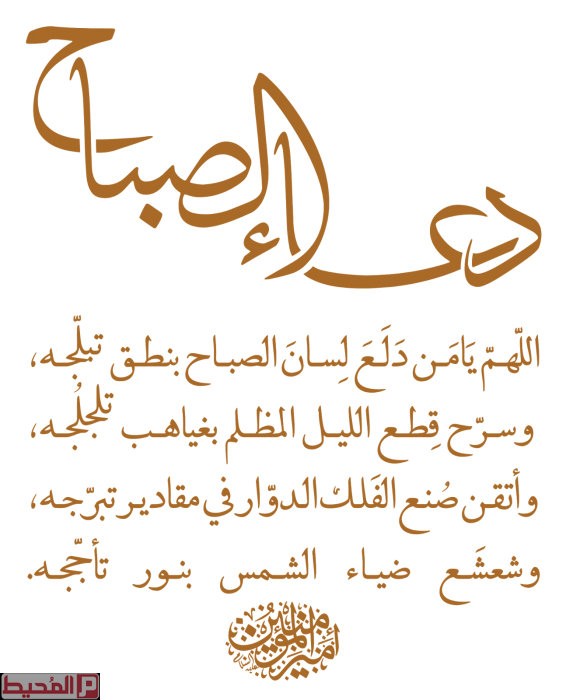 دعاء الصباح
اللّهمّ يَامَن دَلَعَ لِسانَ الصباح بنطق تبلّجه،
وسرّح قِطع الليل المظلم بغياهب تلجلُجه،
وأتقن صُنع الفَلك الدوّار في مقادير تبرّجه،
وشعشَع ضياء الشمس بنور تأجّجه.
أمير المؤمنين
المُحيط